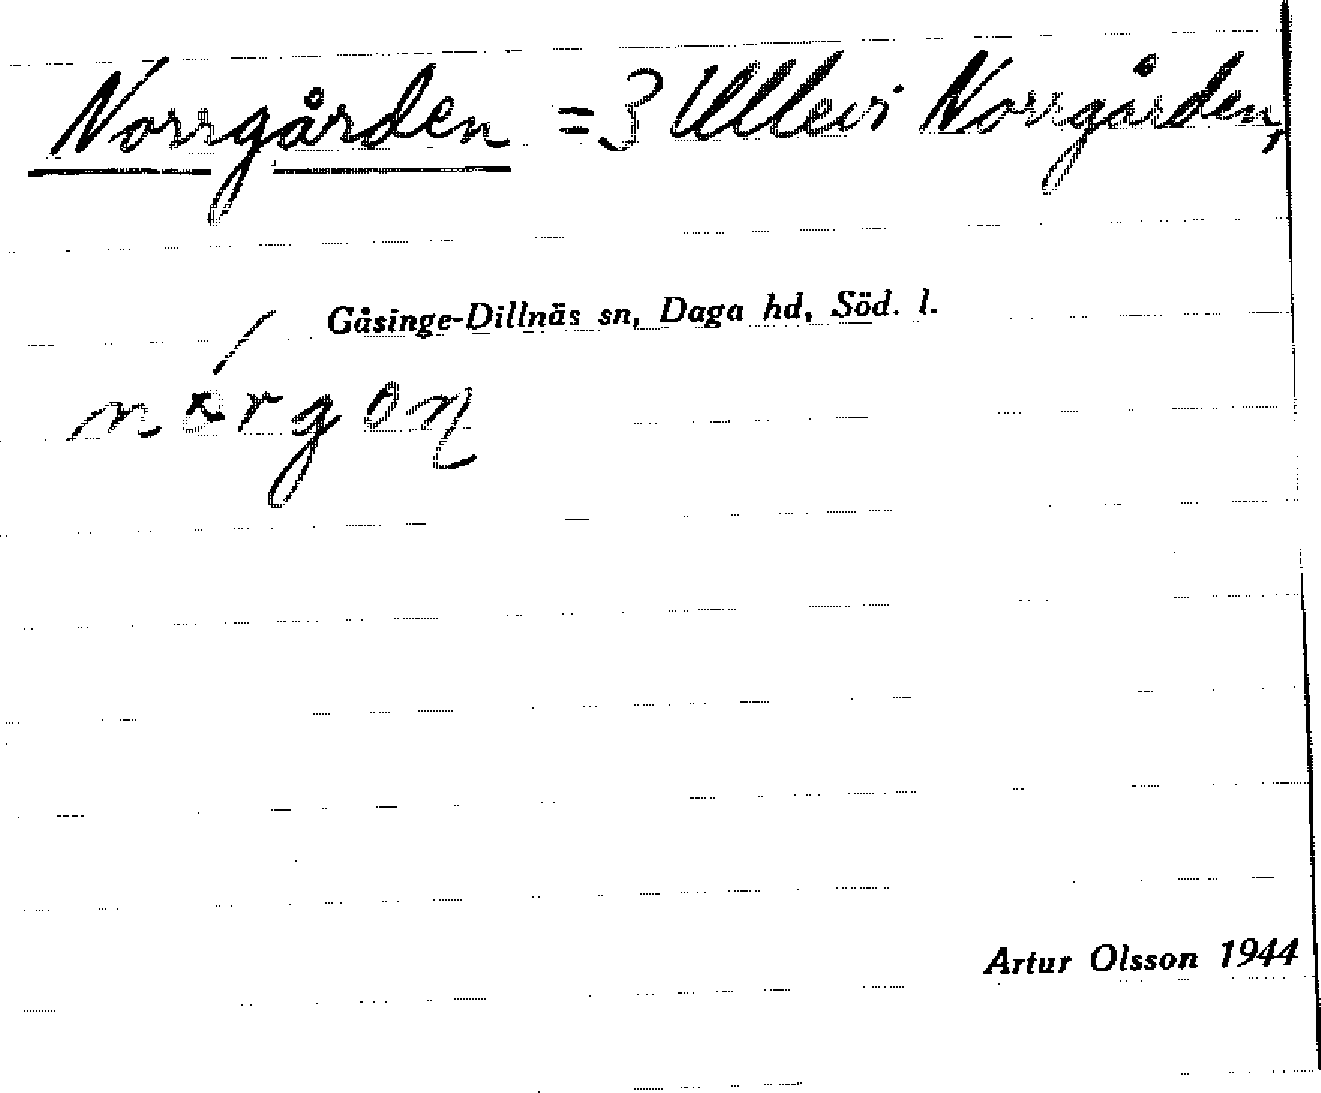 Norrgården = 3 Ullevi Norrgården,
Gåsinge-Dillnäs sn, Daga hd, Söd. l.
Artur Olsson 1944